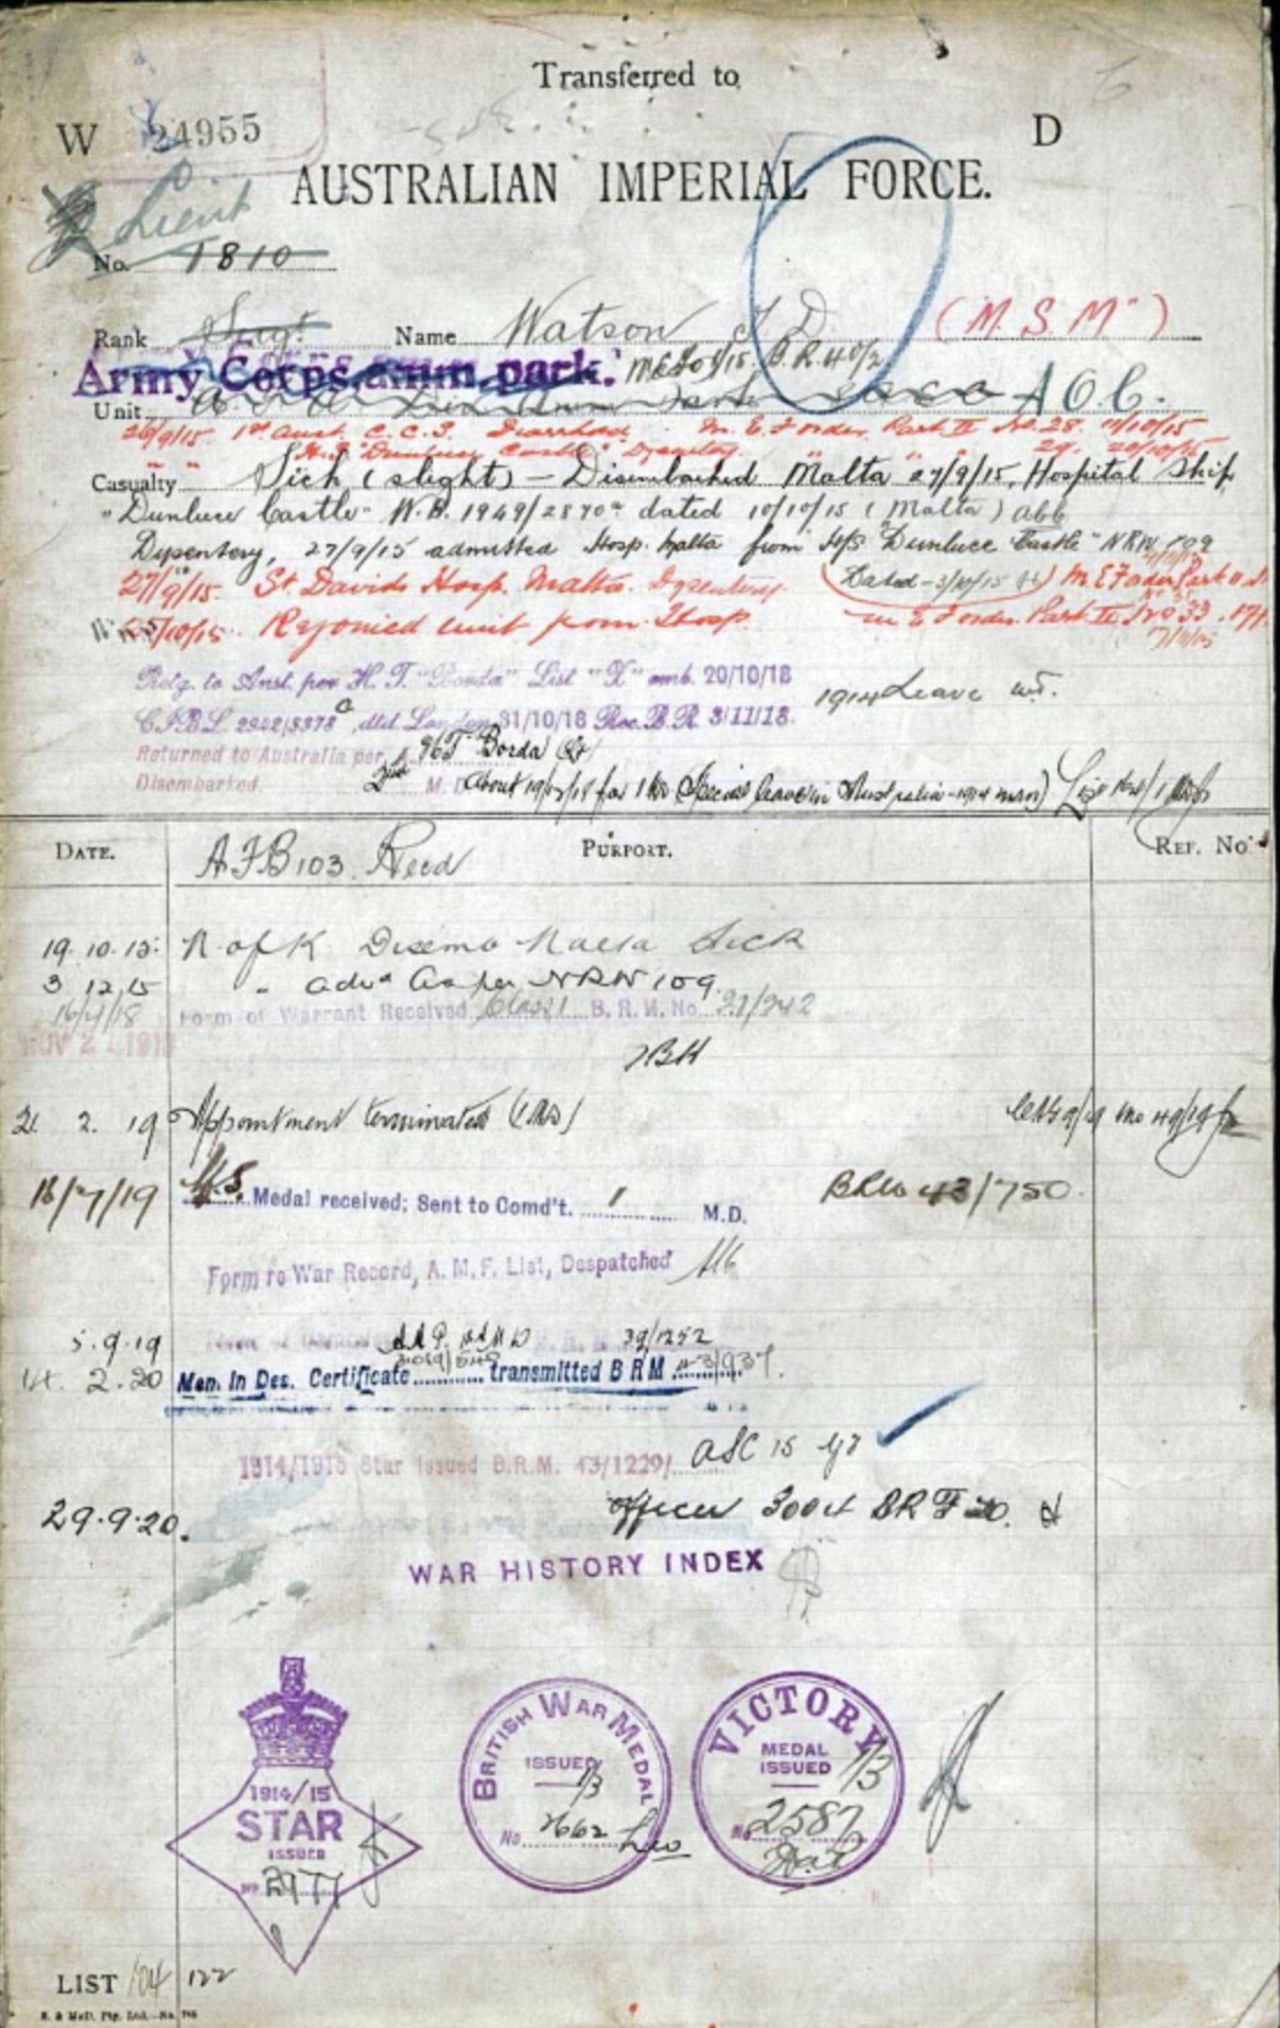 Transferred to
W 24955 D
AUSTRALIAN IMPERIAL FORCE.
Lieut
No. 1810
Rank Sergt Name Watson J D (M.S.M")
Army Corps amm. park.
Unit A.O.C.
26/9/15 1st Aust C.C.S. Diarrhoea. M.E.F order Part II No. 28 11/10/15
H.S "Dunluce Castle" Dysentery. 29. 20/10/15
Casualty Sick (slight) - Disembarked Malta 27/9/15, Hospital Ship
"Dunluce Castle" W.B. 1949/2870 dated 10/10/15 (Malta)
Dysentery, 27/9/15 admitted Hosp. Malta from H/S "Dunluce Castle" NRW 109
27/9/15. St. Davids Hosp. Malta. Dysentery. (Dated 3/10/15) M E F order Part II
25/10/15. Rejoined unit from Hosp. M E F order Part II No 33.
Retg. to Aust. per H. T. "Borda" List "X" emb. 20/10/18
C.I.B.L. 2942/3378 dtd. London 31/10/18 Rec. B.R. 3/11/18.
1914 Leave
Returned to Australia per HT Borda
Disembarked M. D. About 19/12/18 for Special leave in Australia - 1914 man)
DATE. PURPORT. REF. No.
A F B 103 Recd
19. 10. 15 N. of K. Disemb Malta Sick
3 12 15 " advd as per NRW 109
16/4/18 Form of Warrant Received Class 1 B. R. M. No. 27/942
NOV 2
21 2. 19 Appointment terminated (1 MD)
18/7/19 M.S. Medal received; Sent to Comd't. 1 M.D. BRM 43/750
Form re War Record, A. M. F. List, Despatched
5. 9. 19 39/1252
14. 2. 20 Men. In Des. Certificate transmitted B R M 43/937.
1914/1915 Star Issued B.R.M. 43/1229/ ASC 15
29. 9. 20. officer 3004 BRF 20.
WAR HISTORY INDEX
1914/15
STAR
ISSUED
No. 2977
BRITISH WAR MEDAL
ISSUED
1/3
No. 2662
VICTORY
MEDAL
ISSUED 1/3
No. 2587
LIST 104 122